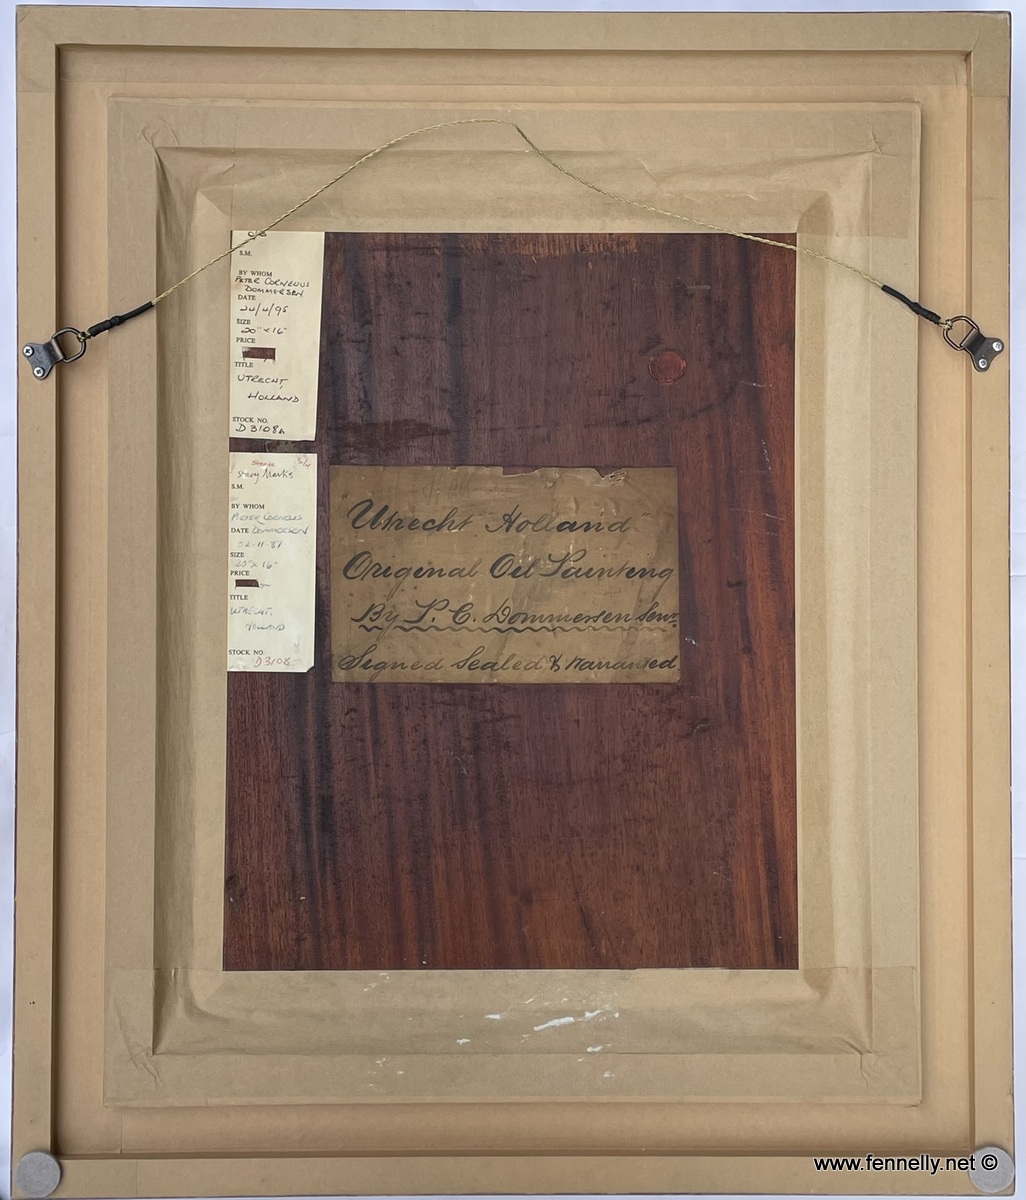 S.M.
BY WHOM
PETER CORNELIUS
DOMMERSEN
DATE
24/4/95
SIZE
20" × 16"
PRICE
TITLE
UTRECHT,
HOLLAND
STOCK NO.
D3108A
Stacy Marks
S.M.
BY WHOM
PIETER CORNELIS
DATE DOMMERSEN
SIZE
20" × 16"
PRICE
TITLE
UTRECHT,
HOLLAND
STOCK NO.
D3108
"Utrecht Holland"
Original Oil Painting
By P. C. Dommersen Senr.
Signed Sealed & Warranted
www.fennelly.net ©